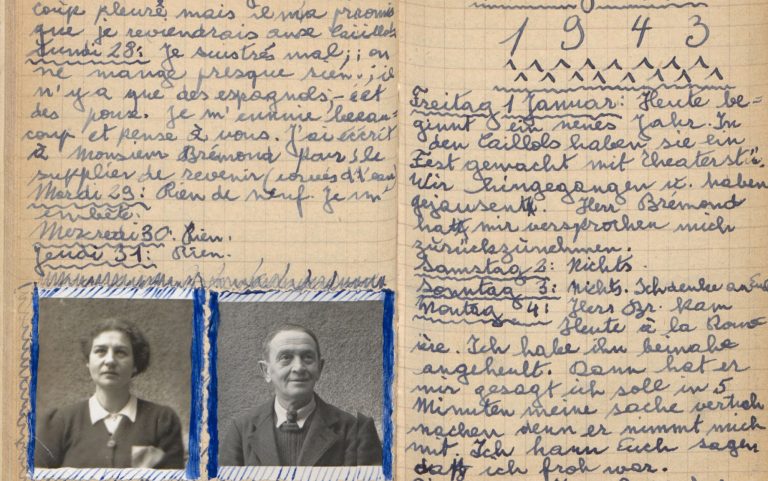 coup pleuré, mais il m'a promis
que je reviendrais aux Caillols
Lundi 28: Je suis très mal; on
ne mange presque rien; il
n'y a que des espagnols, et
des poux. Je m'ennuie beau-
coup et pense à vous. J'ai écrit
à Monsieur Brémond pour le
supplier de revenir
Mardi 29: Rien de neuf. Je m'
embête.
Mercredi 30: Rien.
Jeudi 31: Rien.
1943
Freitag 1 Januar: Heute be-
ginnt ein neues Jahr. In
den Caillols haben sie ein
Fest gemacht mit Theaterst
Wir hingegangen u. haben
gejausent. Herr Bremond
hat mir versprochen mich
zurückzunehmen.
Samstag 2: Nichts.
Sonntag 3: Nichts. Schreibe an
Montag 4: Herr Br. kam
Heute à la Rouv-
ière. Ich habe ihn beinahe
angeheult. Dann hat er
mir gesagt ich soll in 5
Minuten meine sache
machen denn er nimmt mich
mit. Ich kann Euch sagen
daß ich froh war.